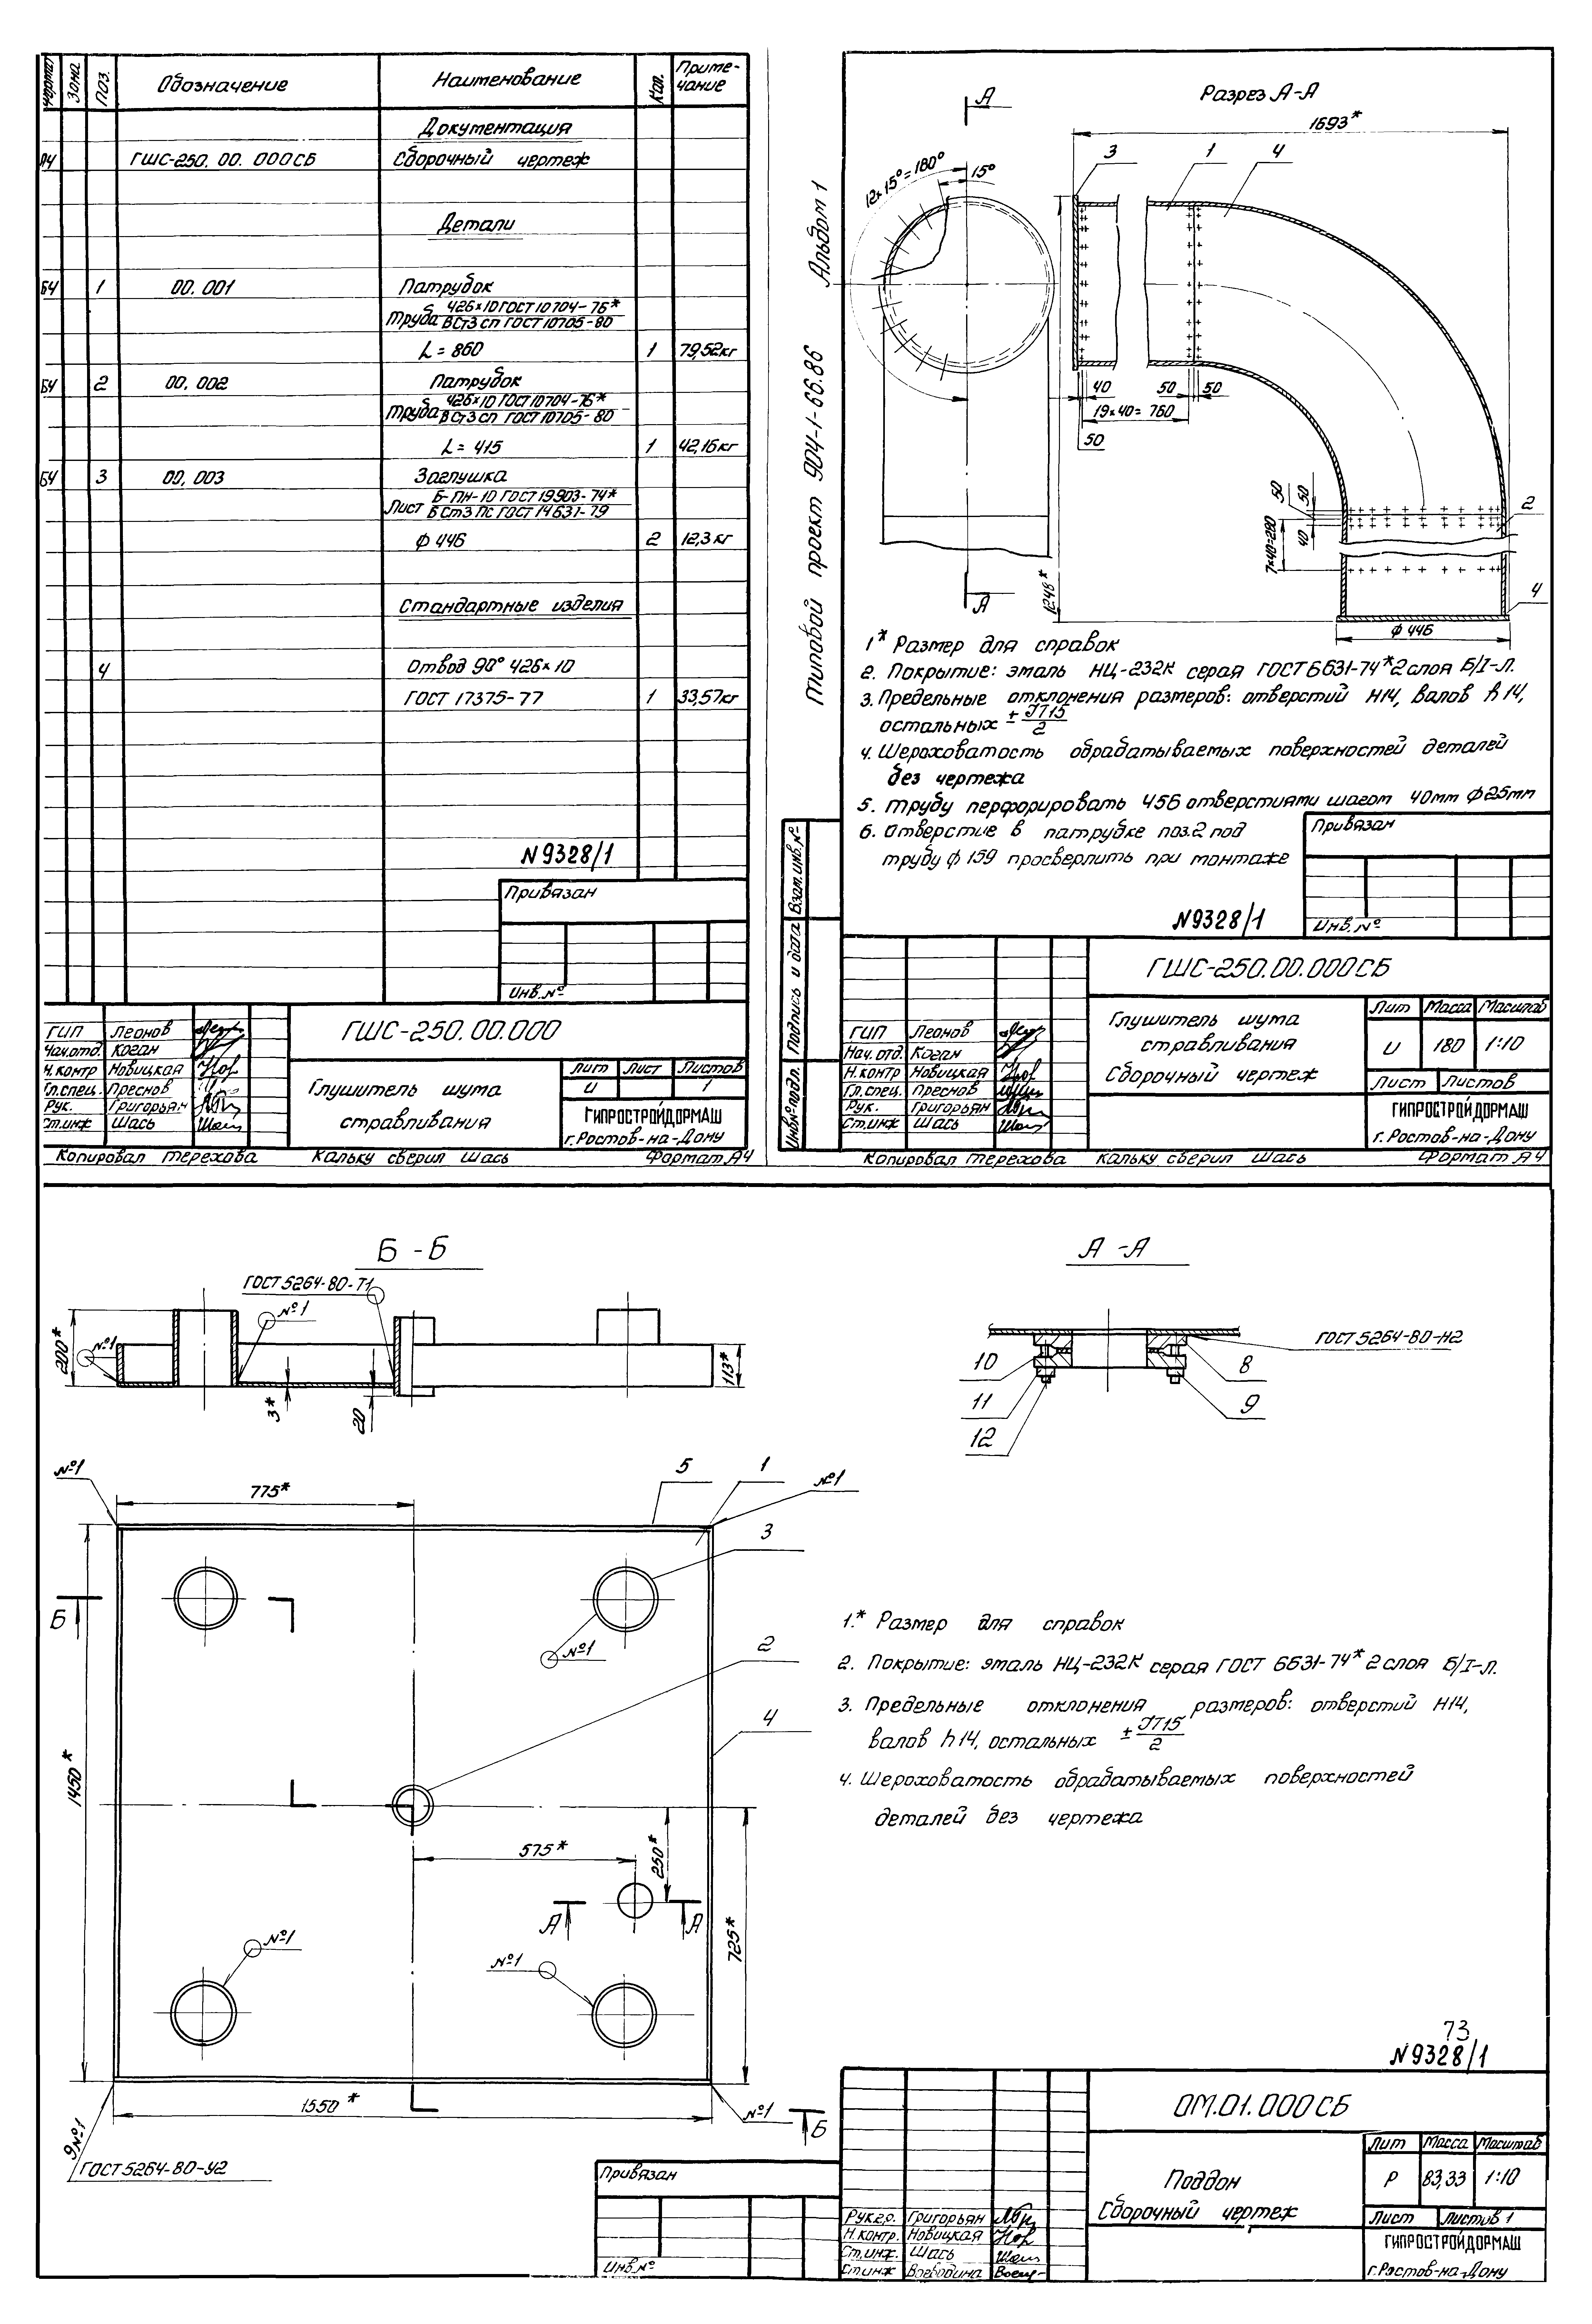 Формат
Зона
Поз.
Обозначение
Наименование
Кол.
Приме-
чание
Документация
А4
ГШС-250.00.000СБ
Сборочный чертеж
Детали
БЧ 1 00.001 Патрубок
Труба 426×10 ГОСТ 10704-76*
В Ст3 сп ГОСТ 10705-80
L = 860 1 79,52кг
БЧ 2 00.002 Патрубок
Труба 426×10 ГОСТ 10704-76*
В Ст3 сп ГОСТ 10705-80
L = 415 1 42,16кг
БЧ 3 00.003 Заглушка
Лист Б-ПН-10 ГОСТ 19903-74*
В Ст3 пс ГОСТ 14637-79
ф 446 2 12,3кг
Стандартные изделия
4 Отвод 90° 426×10
ГОСТ 17375-77 1 33,57кг
N9328/1
Привязан
Инв.№
ГИП Леонов
Нач.отд. Коган
Н.контр Новицкая
Гл.спец. Преснов
Рук. Григорьян
Ст.инж Шась
ГШС-250.00.000
Глушитель шума
стравливания
Лит Лист Листов
И 1
ГИПРОСТРОЙДОРМАШ
г.Ростов-на-Дону
Копировал Терехова Кальку сверил Шась Формат А4
Типовой проект 904-1-66.86 Альбом 1
А
А
12×15°=180°
15°
Разрез А-А
1693*
3 1 4
1248*
40 50 50
19×40=760
50
50 50
40
7×40=280
2
4
ф 446
1* Размер для справок
2. Покрытие: эмаль НЦ-232К серая ГОСТ 6631-74* 2 слоя Б/I-Л.
3. Предельные отклонения размеров: отверстий Н14, валов h14,
остальных ± IT15/2
4. Шероховатость обрабатываемых поверхностей деталей
без чертежа
5. Трубу перфорировать 456 отверстиями шагом 40мм ф25мм
6. Отверстие в патрубке поз.2 под
трубу ф 159 просверлить при монтаже
N9328/1
Привязан
Инв.№
Инв№подл. Подпись и дата Взам.инв.№
ГШС-250.00.000СБ
ГИП Леонов
Нач.отд. Коган
Н.контр Новицкая
Гл.спец. Преснов
Рук. Григорьян
Ст.инж Шась
Глушитель шума
стравливания
Сборочный чертеж
Лит Масса Масштаб
И 180 1:10
Лист Листов
ГИПРОСТРОЙДОРМАШ
г.Ростов-на-Дону
Копировал Терехова Кальку сверил Шась Формат А4
Б-Б
ГОСТ 5264-80-Т1
№1
№1
200*
3*
20
113*
А-А
ГОСТ 5264-80-Н2
10
11
12
8
9
№1
775*
5
1
№1
3
Б
№1
2
4
1450*
575*
250*
725*
А
А
№1
№1
1550*
№1
Б
9№1
ГОСТ 5264-80-У2
1.* Размер для справок
2. Покрытие: эмаль НЦ-232К серая ГОСТ 6631-74* 2 слоя Б/I-Л.
3. Предельные отклонения размеров: отверстий Н14,
валов h14, остальных ± IT15/2
4. Шероховатость обрабатываемых поверхностей
деталей без чертежа
73
N9328/1
Привязан
Инв.№
ОМ.01.000СБ
Поддон
Сборочный чертеж
Лит Масса Масштаб
Р 83,33 1:10
Лист Листов 1
ГИПРОСТРОЙДОРМАШ
г.Ростов-на-Дону
Рук.гр. Григорьян
Н.контр. Новицкая
Ст.инж. Шась
Ст.инж Воеводина